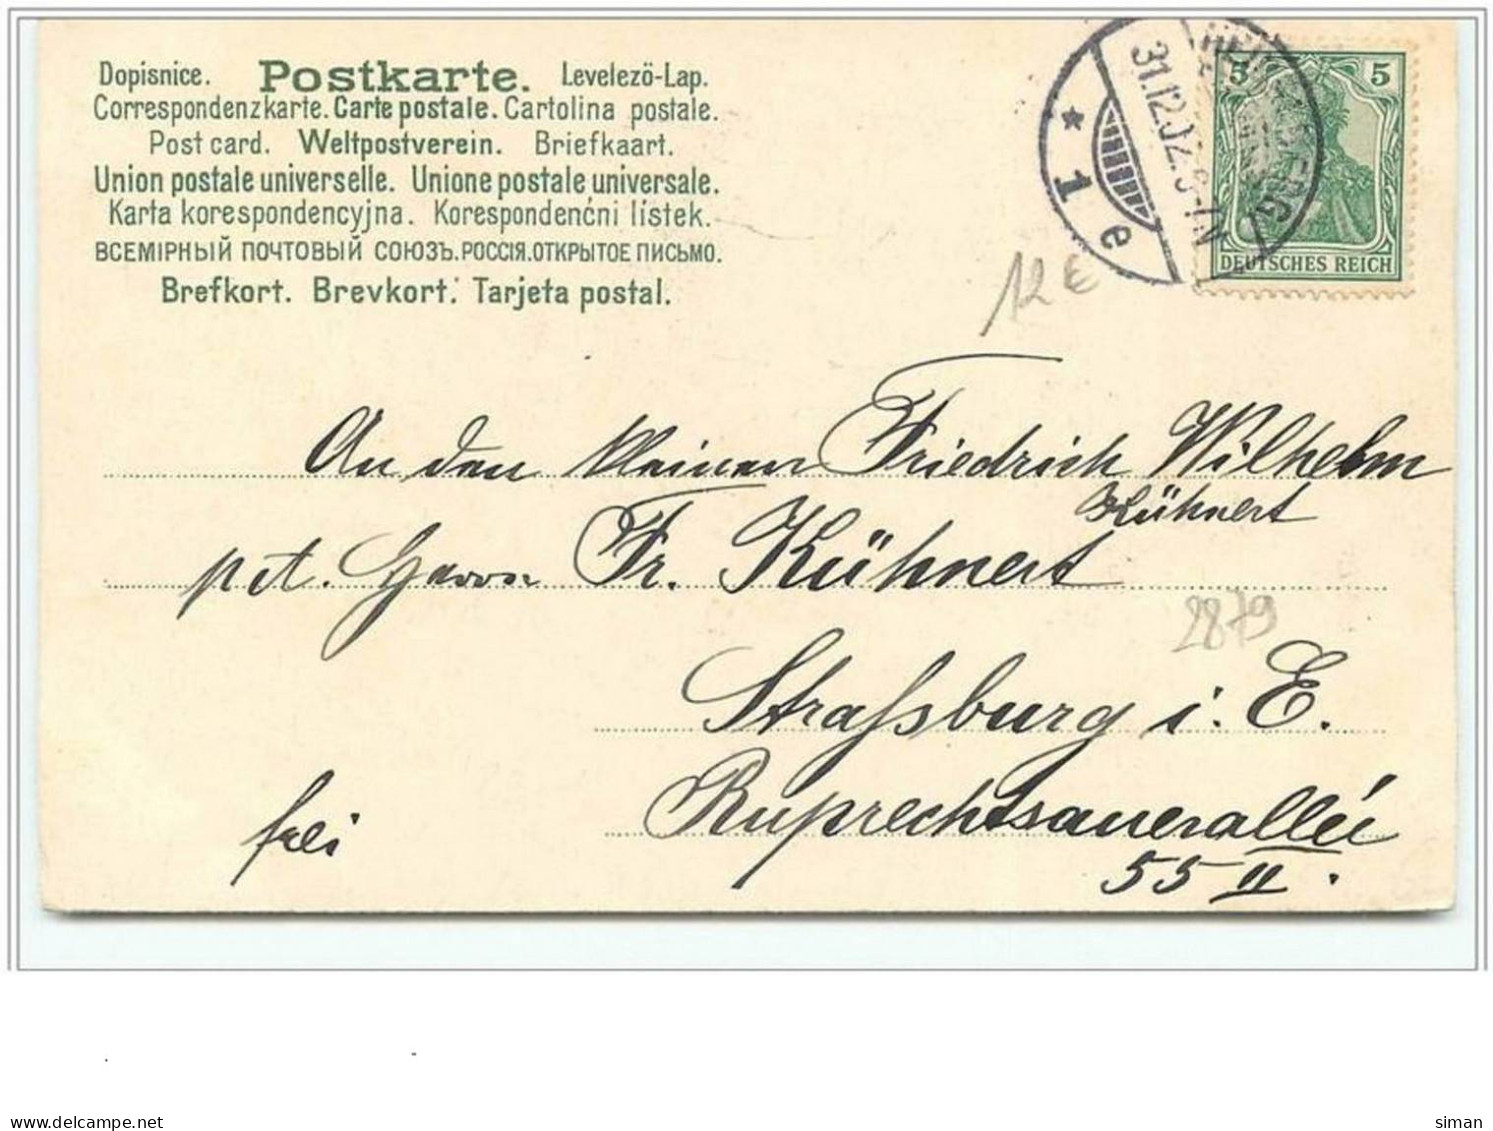 Dopisnice. Postkarte. Levelező-Lap.
Correspondenzkarte. Carte postale. Cartolina postale.
Post card. Weltpostverein. Briefkaart.
Union postale universelle. Unione postale universale.
Karta korespondencyjna. Korespondenční lístek.
ВСЕМІРНЫЙ ПОЧТОВЫЙ СОЮЗЪ. РОССІЯ. ОТКРЫТОЕ ПИСЬМО.
Brefkort. Brevkort. Tarjeta postal.
31.12.02.
* 1 e
5 5
DEUTSCHES REICH
12 €
An den kleinen Friedrich Wilhelm
Kühnert
pct. Herrn Fr. Kühnert
2879
Straßburg i. E.
frei
Ruprechtsauerallée
55 II.
siman